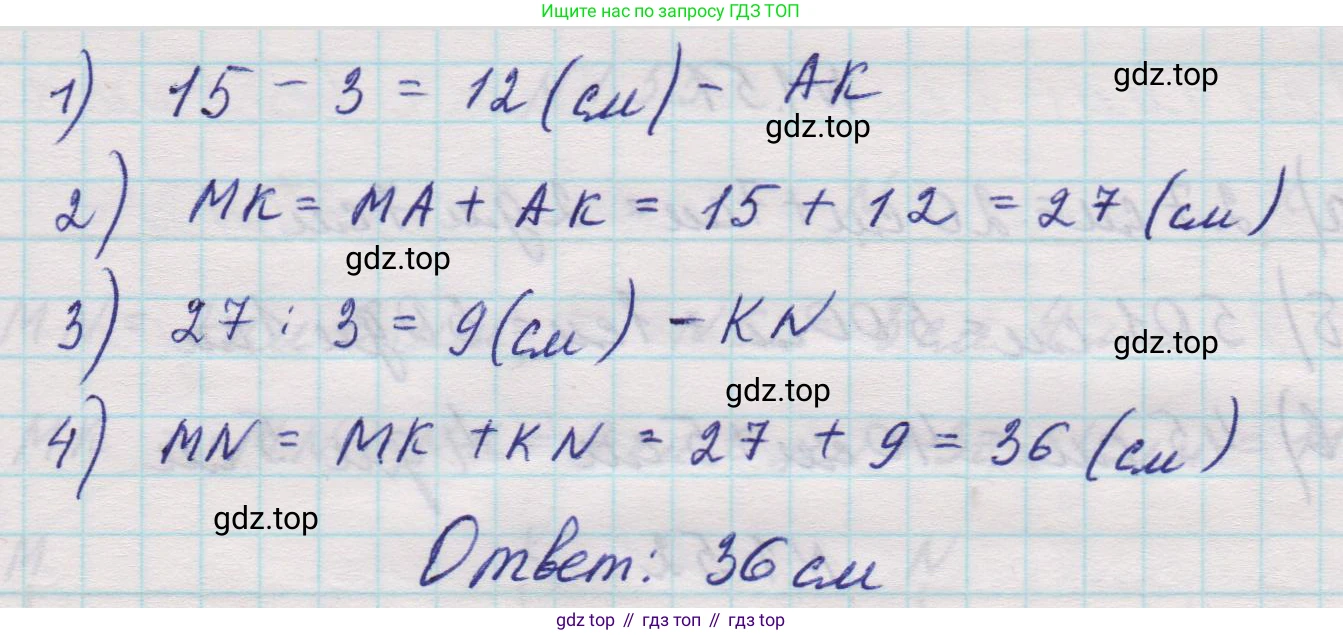 Ищите нас по запросу ГДЗ ТОП
1) 15 - 3 = 12 (см) - АК
gdz.top
gdz.top
2) МК = МА + АК = 15 + 12 = 27 (см)
gdz.top
3) 27 : 3 = 9 (см) - KN
gdz.top
gdz.top
4) MN = MK + KN = 27 + 9 = 36 (см)
gdz.top
Ответ: 36 см
gdz top // гдз топ // gdz top